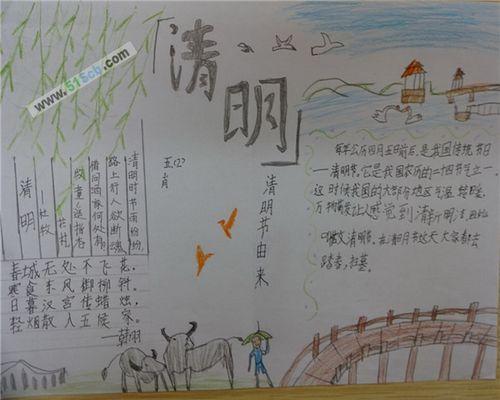 www.515cb.com
「清明」
五.(2)
肖
清明节由来
清明
杜牧
清明时节雨纷纷，
路上行人欲断魂
借问酒家何处有，
牧童
春城无处不飞花，
寒食东风御柳
日暮汉宫传蜡烛，
轻烟散入五侯家。
——韩翃
每年公历四月五日前后，是我国传统节日
——清明节，它是我国农历的二十四节气之一
这时候我国的大部份地区气温
万物 让人感觉到清新明
叫做 清明节。在清明节这天大家都去
踏青，扫墓。